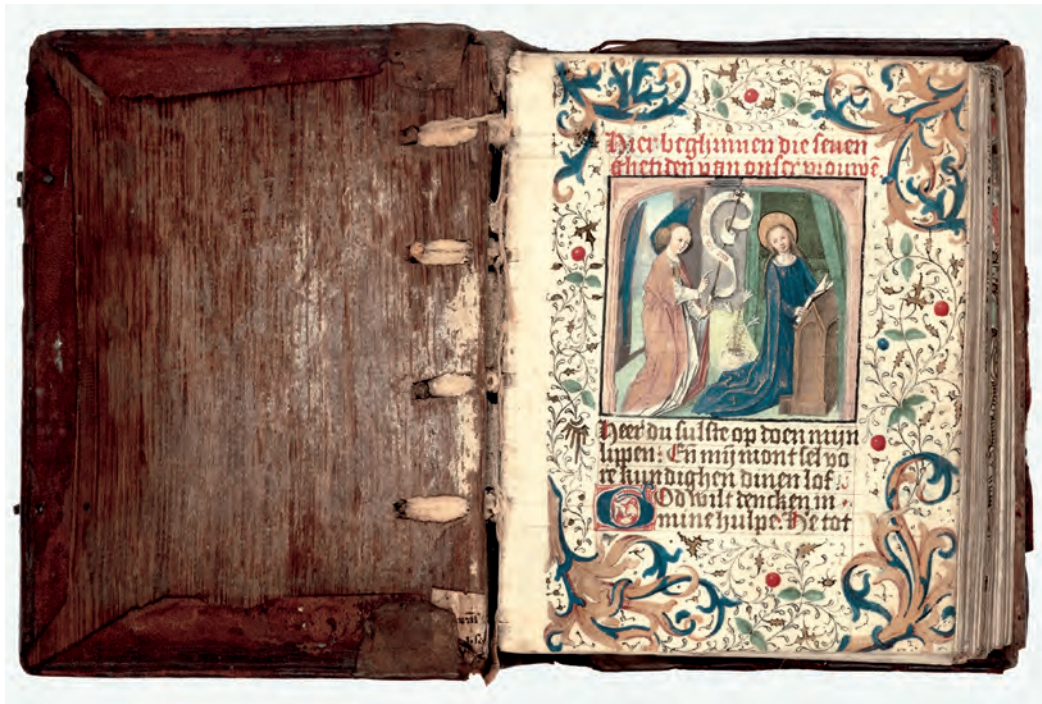 Hier beghinnen die seuen
ghetiden van onser vrouwē
Heer du sulste op doen mijn
lippen. En mij mont sel vo
re kundighen dinen lof
God wilt dencken in
mine hulpe. He tot